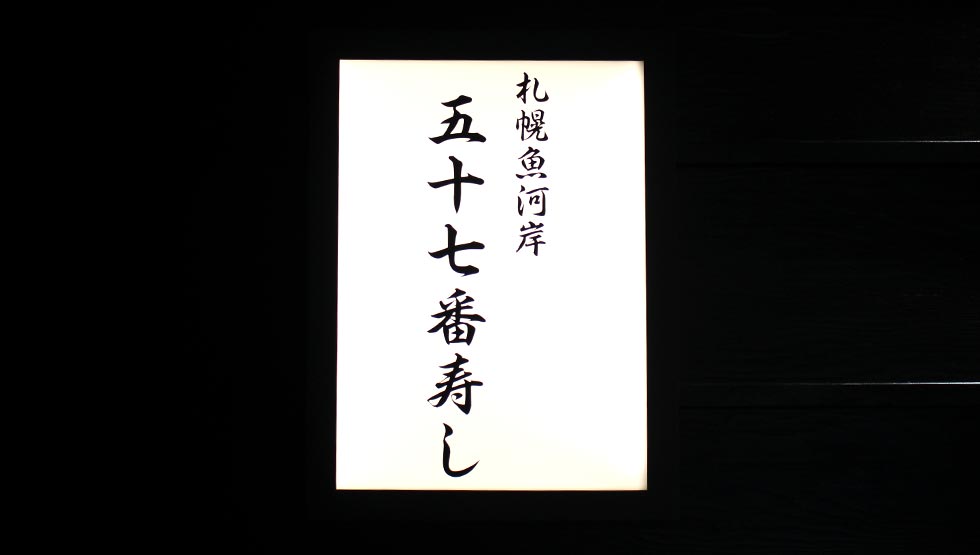 札幌魚河岸
五十七番寿し